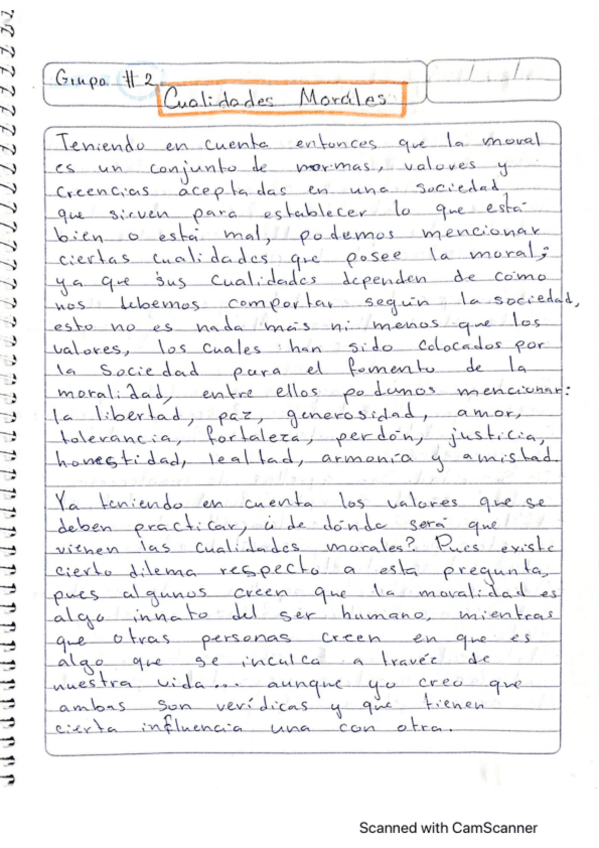 Grupo #2
Cualidades Morales
Teniendo en cuenta entonces que la moral
es un conjunto de normas, valores y
creencias aceptadas en una sociedad,
que sirven para establecer lo que está
bien o está mal, podemos mencionar
ciertas cualidades que posee la moral;
ya que sus cualidades dependen de como
nos debemos comportar según la sociedad,
esto no es nada más ni menos que los
valores, los cuales han sido colocados por
la sociedad para el fomento de la
moralidad, entre ellos podemos mencionar:
la libertad, paz, generosidad, amor,
tolerancia, fortaleza, perdón, justicia,
honestidad, lealtad, armonía y amistad
Ya teniendo en cuenta los valores que se
deben practicar, ¿de dónde será que
vienen las cualidades morales? Pues existe
cierto dilema respecto a esta pregunta,
pues algunos creen que la moralidad es
algo innato del ser humano, mientras
que otras personas creen en que es
algo que se inculca a travéc de
nuestra vida... aunque yo creo que
ambas son verídicas y que tienen
cierta influencia una con otra.
Scanned with CamScanner